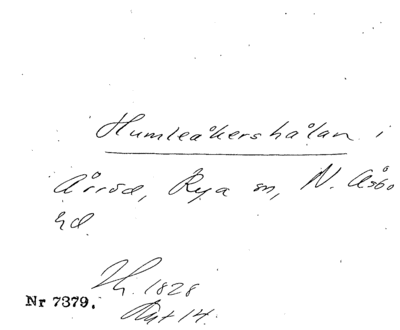 Humleåkershålan i
Årröd, Rya sn, N. Åsbo
hd.
Lh. 1828
Akt 14.
Nr 7379.